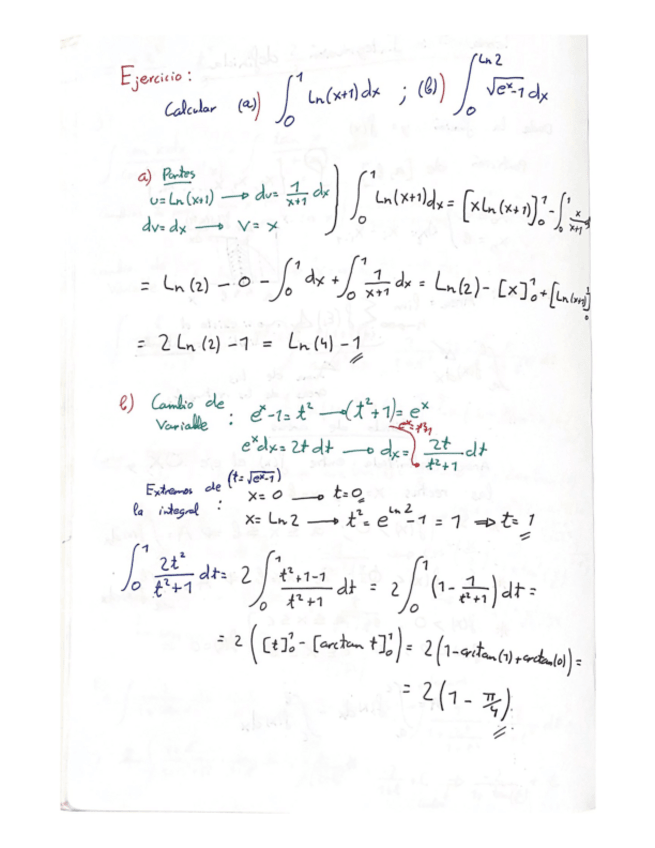 Ejercicio:
Calcular (a) ∫₀¹ Ln(x+1)dx ; (b) ∫₀^{Ln2} √(eˣ-1) dx
a) Partes
u=Ln(x+1) → du= 1/(x+1) dx
dv=dx → v=x
∫₀¹ Ln(x+1)dx = [xLn(x+1)]₀¹ - ∫₀¹ x/(x+1)
= Ln(2) - 0 - ∫₀¹ dx + ∫₀¹ 1/(x+1) dx = Ln(2) - [x]₀¹ + [Ln(x+1)]₀¹
= 2Ln(2) - 1 = Ln(4) - 1
b) Cambio de
Variable : eˣ-1=t² → (t²+1)=eˣ
eˣ=t²+1
eˣdx=2t dt → dx= 2t/(t²+1) dt
(t=√(eˣ-1))
Extremos de
la integral :
x=0 → t=0
x=Ln2 → t²=e^{Ln2}-1=1 ⇒ t=1
∫₀¹ 2t²/(t²+1) dt= 2∫₀¹ (t²+1-1)/(t²+1) dt = 2∫₀¹ (1 - 1/(t²+1)) dt =
= 2([t]₀¹ - [arctan t]₀¹) = 2(1-arctan(1)+arctan(0)) =
= 2(1 - π/4)